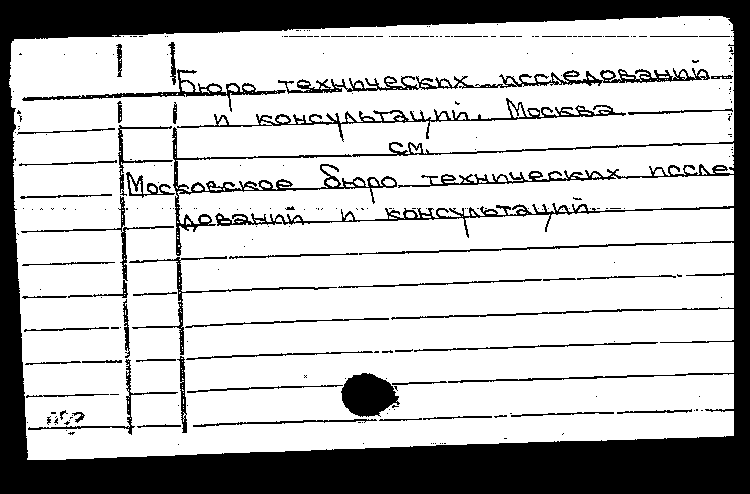 Бюро технических исследований
и консультаций. Москва
см.
Московское бюро технических иссле-
дований и консультаций.